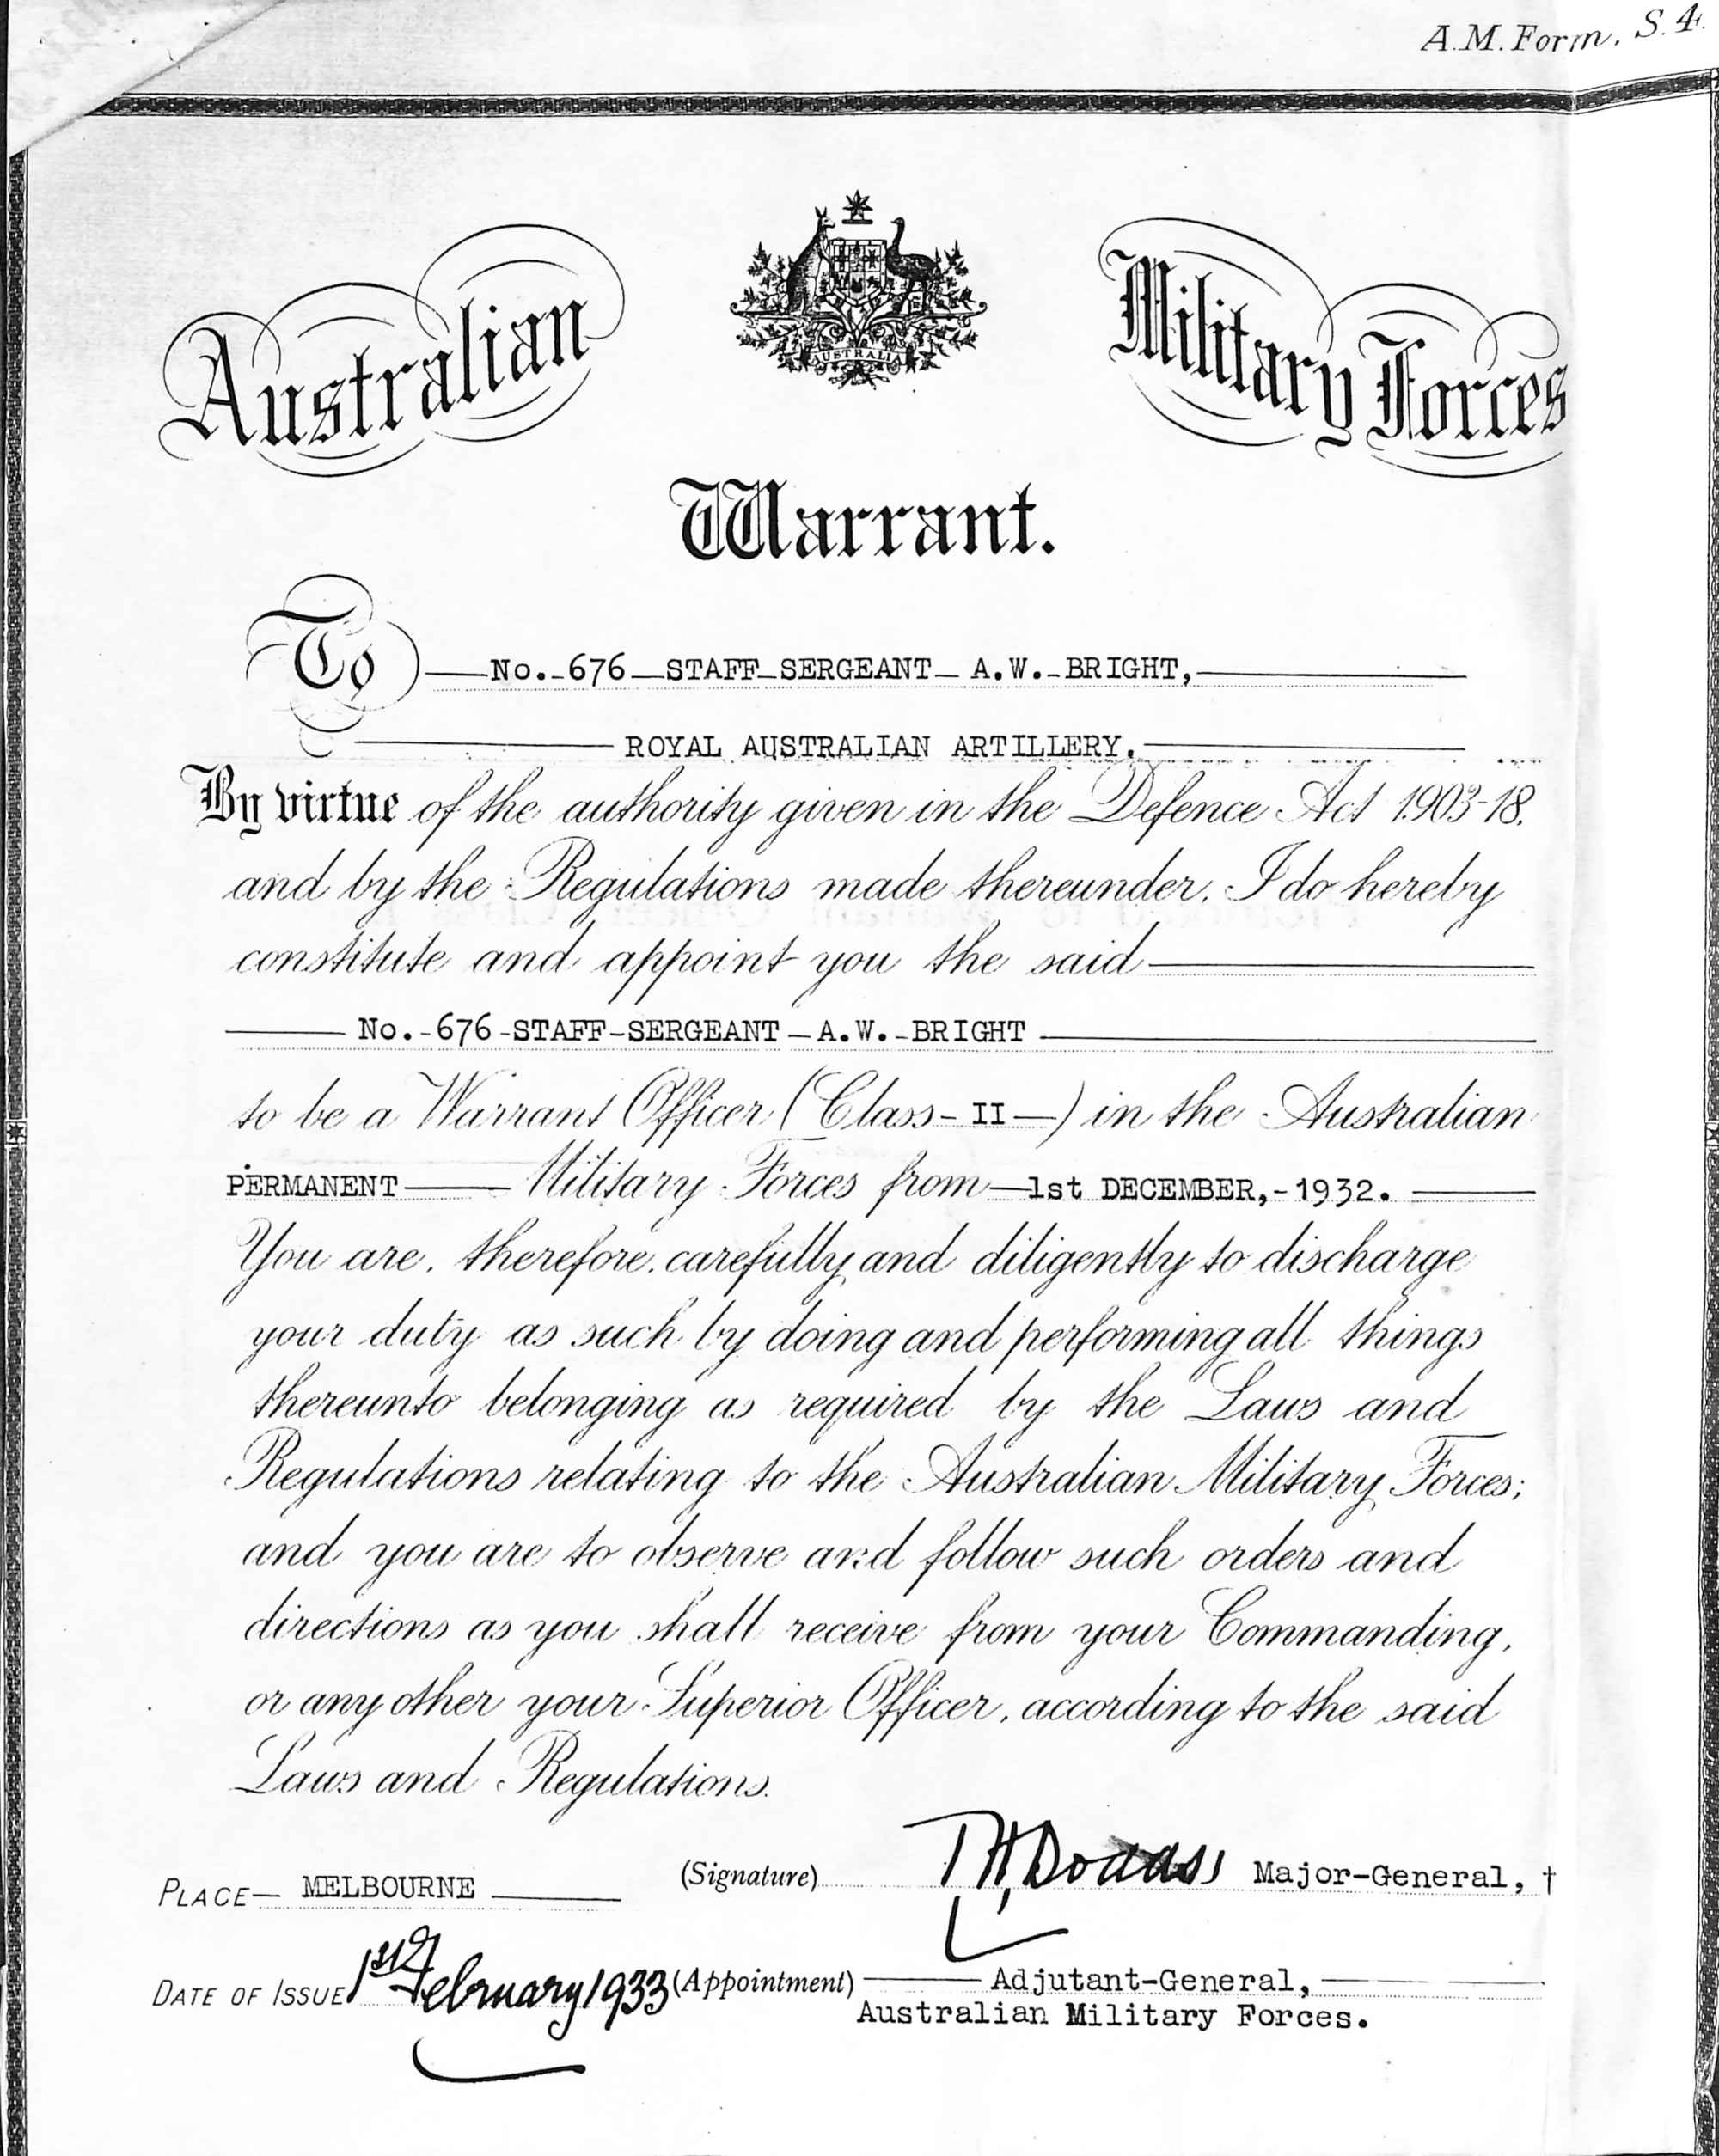 A.M. Form, S. 4.
AUSTRALIA
Australian Military Forces
Warrant.
To No. 676 STAFF SERGEANT A.W. BRIGHT,
ROYAL AUSTRALIAN ARTILLERY.
By virtue of the authority given in the Defence Act 1903-18.
and by the Regulations made thereunder, I do hereby
constitute and appoint you the said
No. 676 STAFF SERGEANT A.W. BRIGHT
to be a Warrant Officer (Class II) in the Australian
PERMANENT Military Forces from 1st DECEMBER, 1932.
You are, therefore, carefully and diligently to discharge
your duty as such by doing and performing all things
thereunto belonging as required by the Laws and
Regulations relating to the Australian Military Forces;
and you are to observe and follow such orders and
directions as you shall receive from your Commanding,
or any other your Superior Officer, according to the said
Laws and Regulations.
PLACE MELBOURNE (Signature) T.H. Dodds Major-General, †
DATE OF ISSUE 1st February 1933 (Appointment) Adjutant-General,
Australian Military Forces.